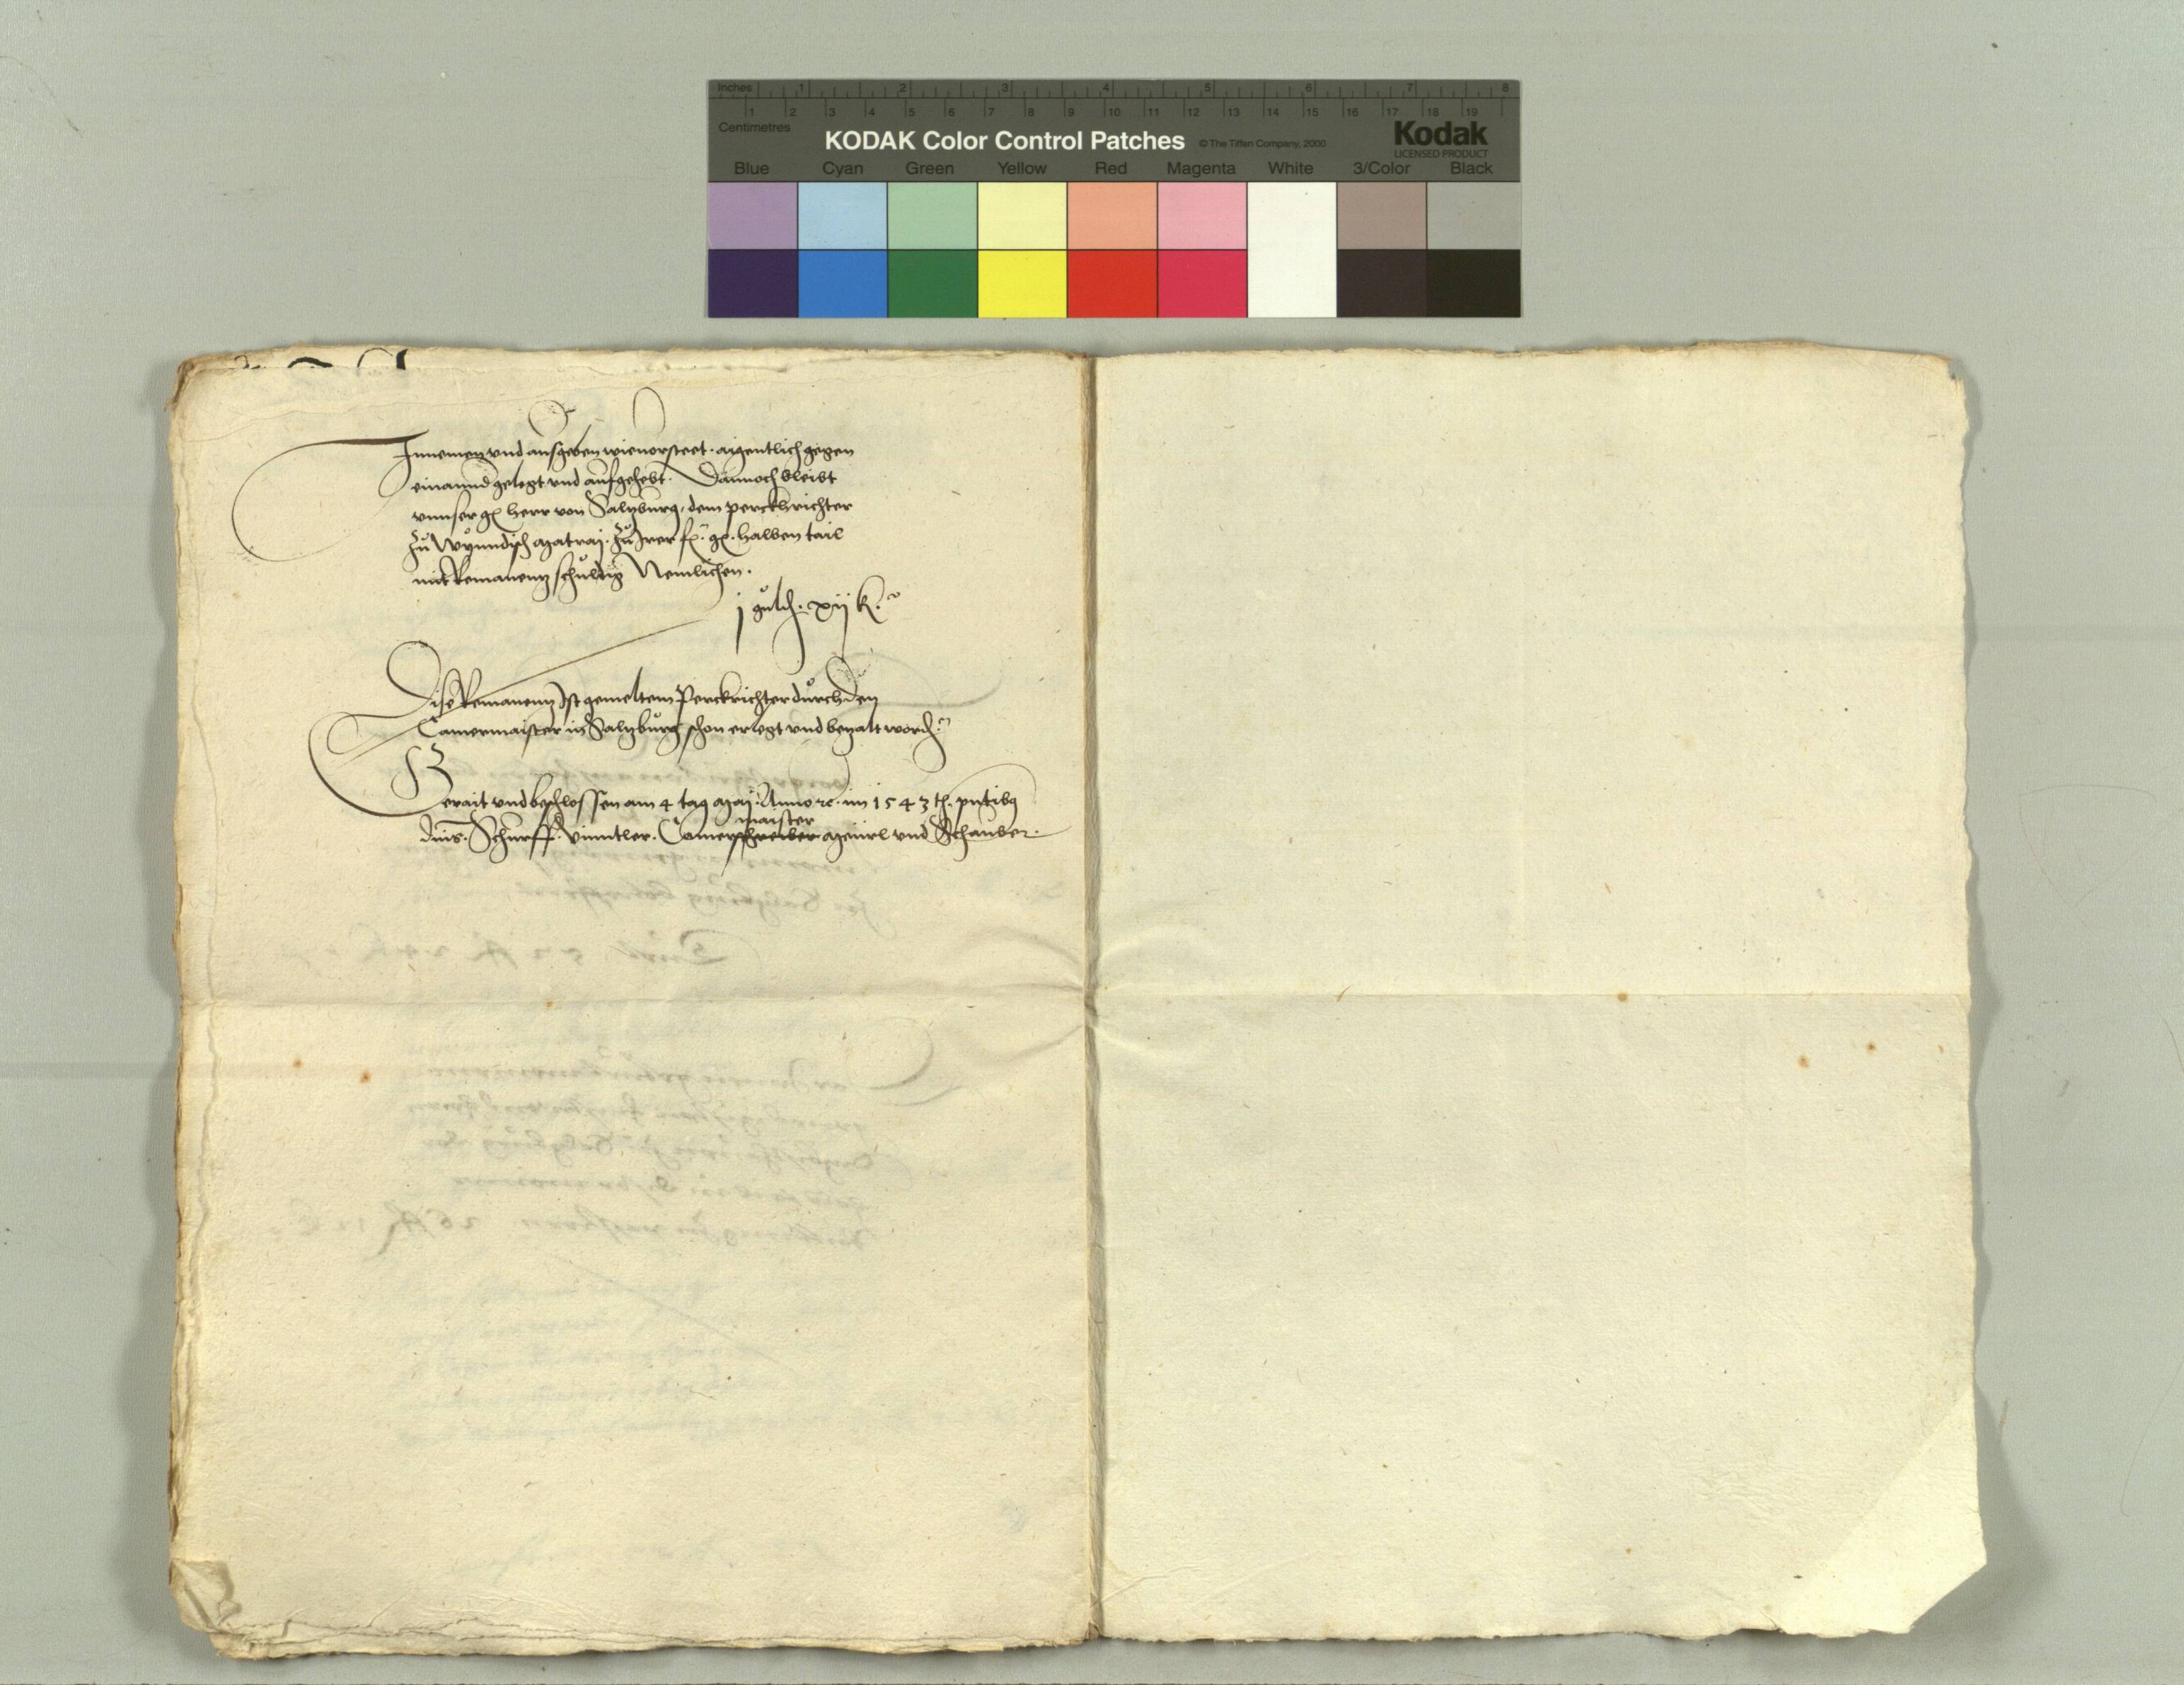 Inches 1 2 3 4 5 6 7 8
1 2 3 4 5 6 7 8 9 10 11 12 13 14 15 16 17 18 19
Centimetres
KODAK Color Control Patches © The Tiffen Company, 2000 Kodak
LICENSED PRODUCT
Blue Cyan Green Yellow Red Magenta White 3/Color Black
Innemen vnd ausgeben wie vorsteet. aigentlich gegen
einannd gelegt vnd aufgehebt. Dannoch bleibt
vnnser g. herr von Saltzburg, dem perckhrichter
zů Wynndisch Matraj. zů Irer f. g. halben tail
mit Remanentz schuldig Nemlichen.
j guld. xij k.
Dise Remanentz Ist gemeltem Perckrichter durch den
Camermaister in Saltzburg schon erlegt vnd betzalt word.
Gerait vnd beschlossen am 4 tag Maij. Anno rc. im 1543 t. pntibq
maister
dnis. Schurff. Vinntler. Camerschreiber Meurl vnd Schauber.